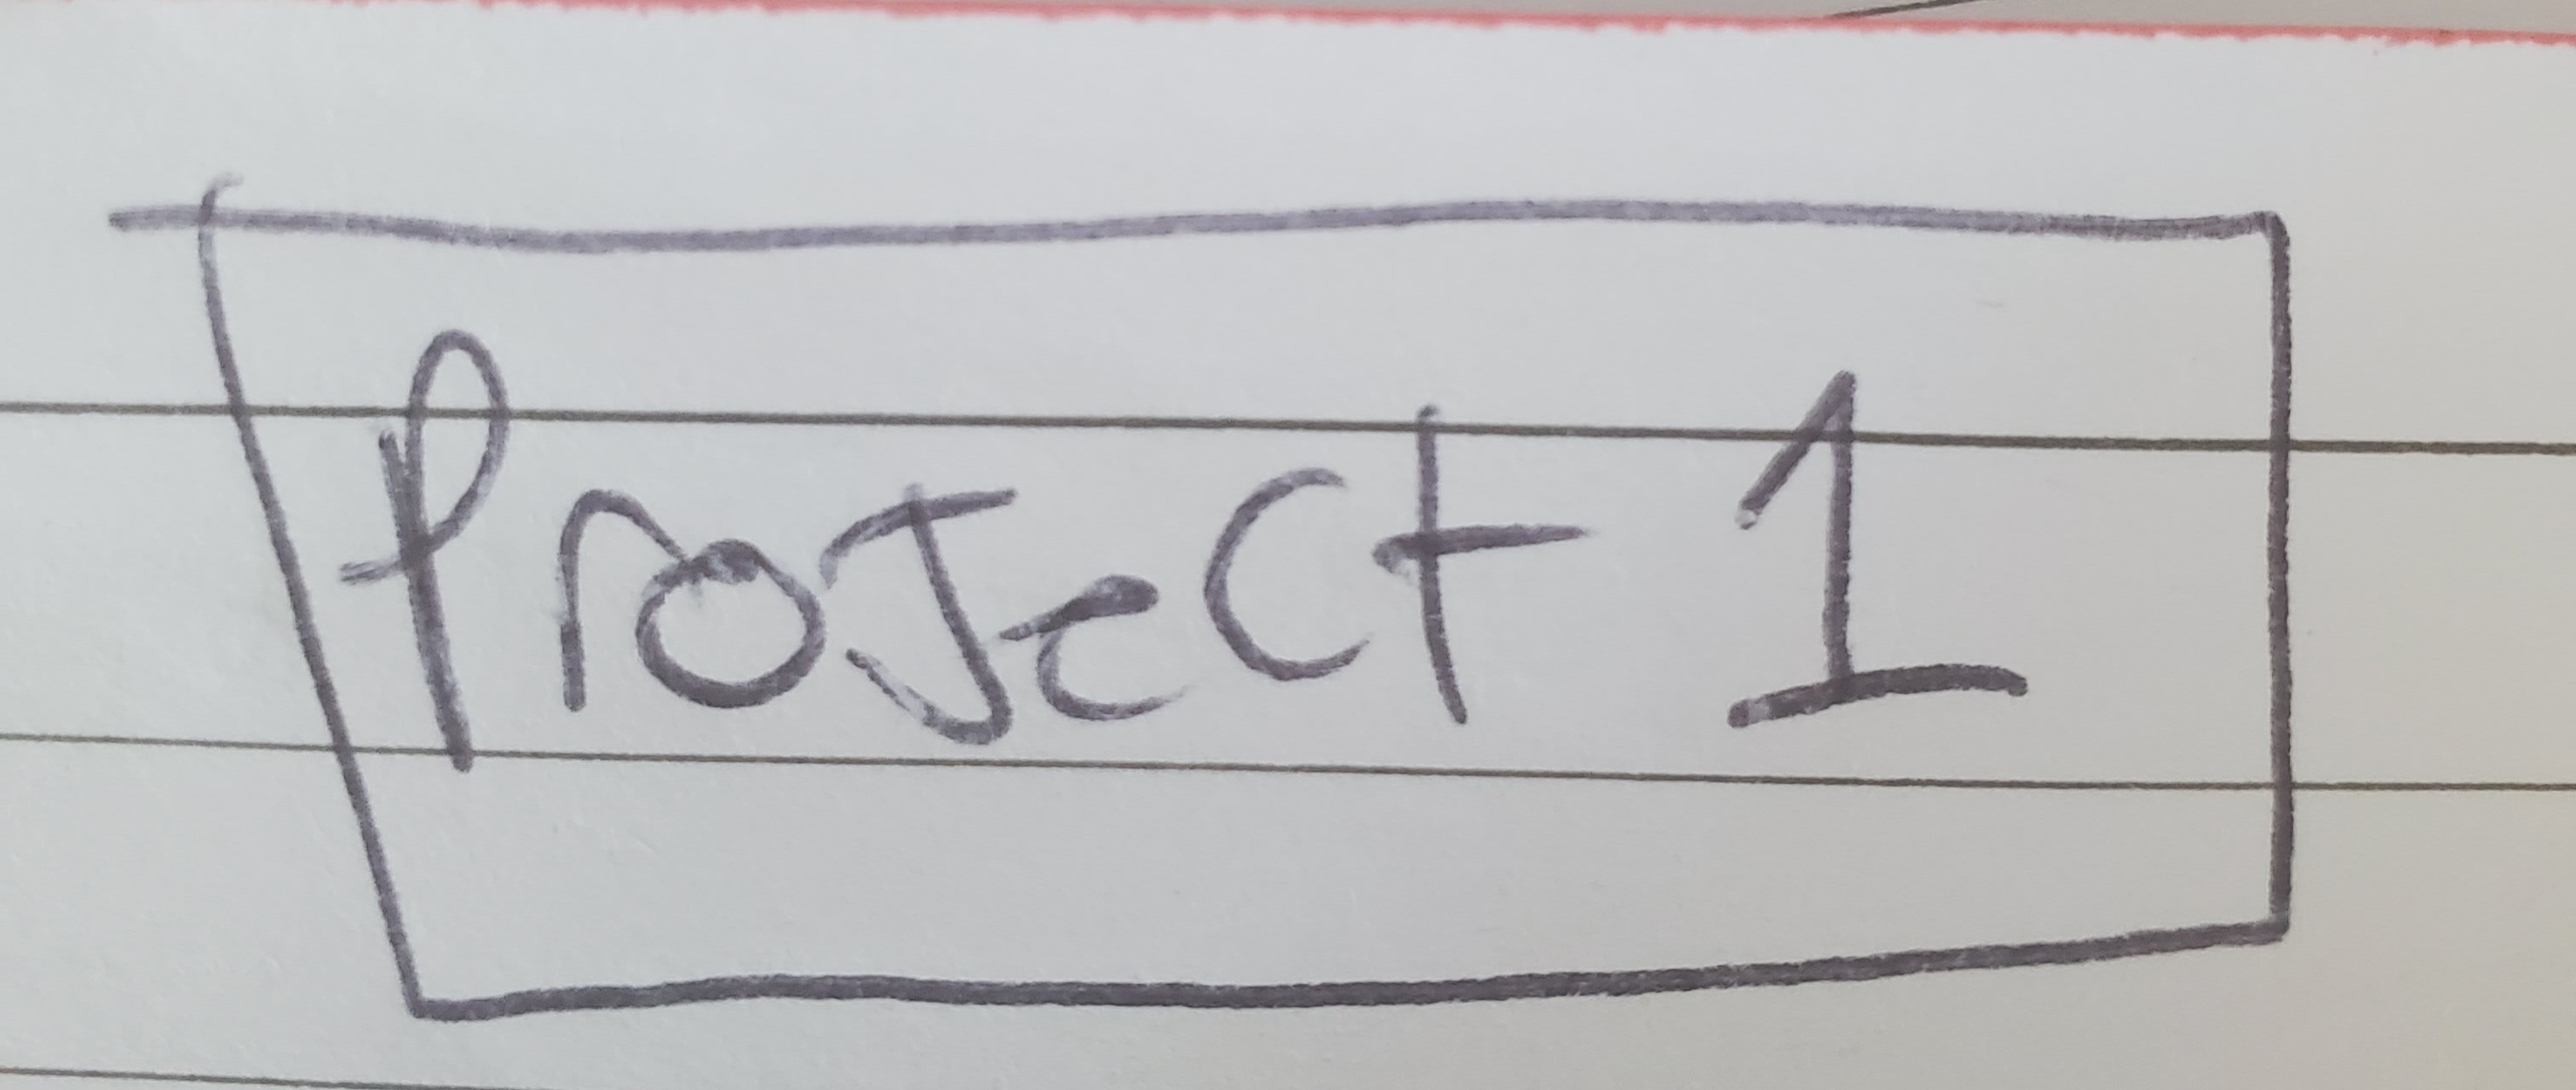 Project 1